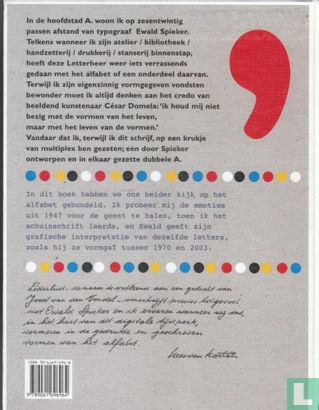 In de hoofdstad A. woon ik op zesentwintig
passen afstand van typograaf Ewald Spieker.
Telkens wanneer ik zijn atelier / bibliotheek /
handzetterij / drukkerij / stanserij binnenstap,
heeft deze Letterheer weer iets verrassends
gedaan met het alfabet of een onderdeel daarvan.
Terwijl ik zijn eigenzinnig vormgegeven vondsten
bewonder moet ik altijd denken aan het credo van
beeldend kunstenaar César Domela: 'ik houd mij niet
bezig met de vormen van het leven,
maar met het leven van de vormen.'
Vandaar dat ik, terwijl ik dit schrijf, op een krukje
van multiplex ben gezeten; een door Spieker
ontworpen en in elkaar gezette dubbele A.
In dit boek hebben we ons beider kijk op het
alfabet gebundeld. Ik probeer mij de emoties
uit 1947 voor de geest te halen, toen ik het
schuinschrift leerde, en Ewald geeft zijn
grafische interpretatie van dezelfde letters,
zoals hij ze vormgaf tussen 1970 en 2003.
Letterlust - de naam is ontleend aan een gedicht van
Joost van den Vondel - omschrijft precies het gevoel
wat Ewald Spieker en ik ervaren wanneer wij ons,
in het hart van dit digitale tijdperk,
vermeien in de gedrukte en geschreven
vormen van het alfabet.
Kees van Kooten
9 789061 696964
catawiki